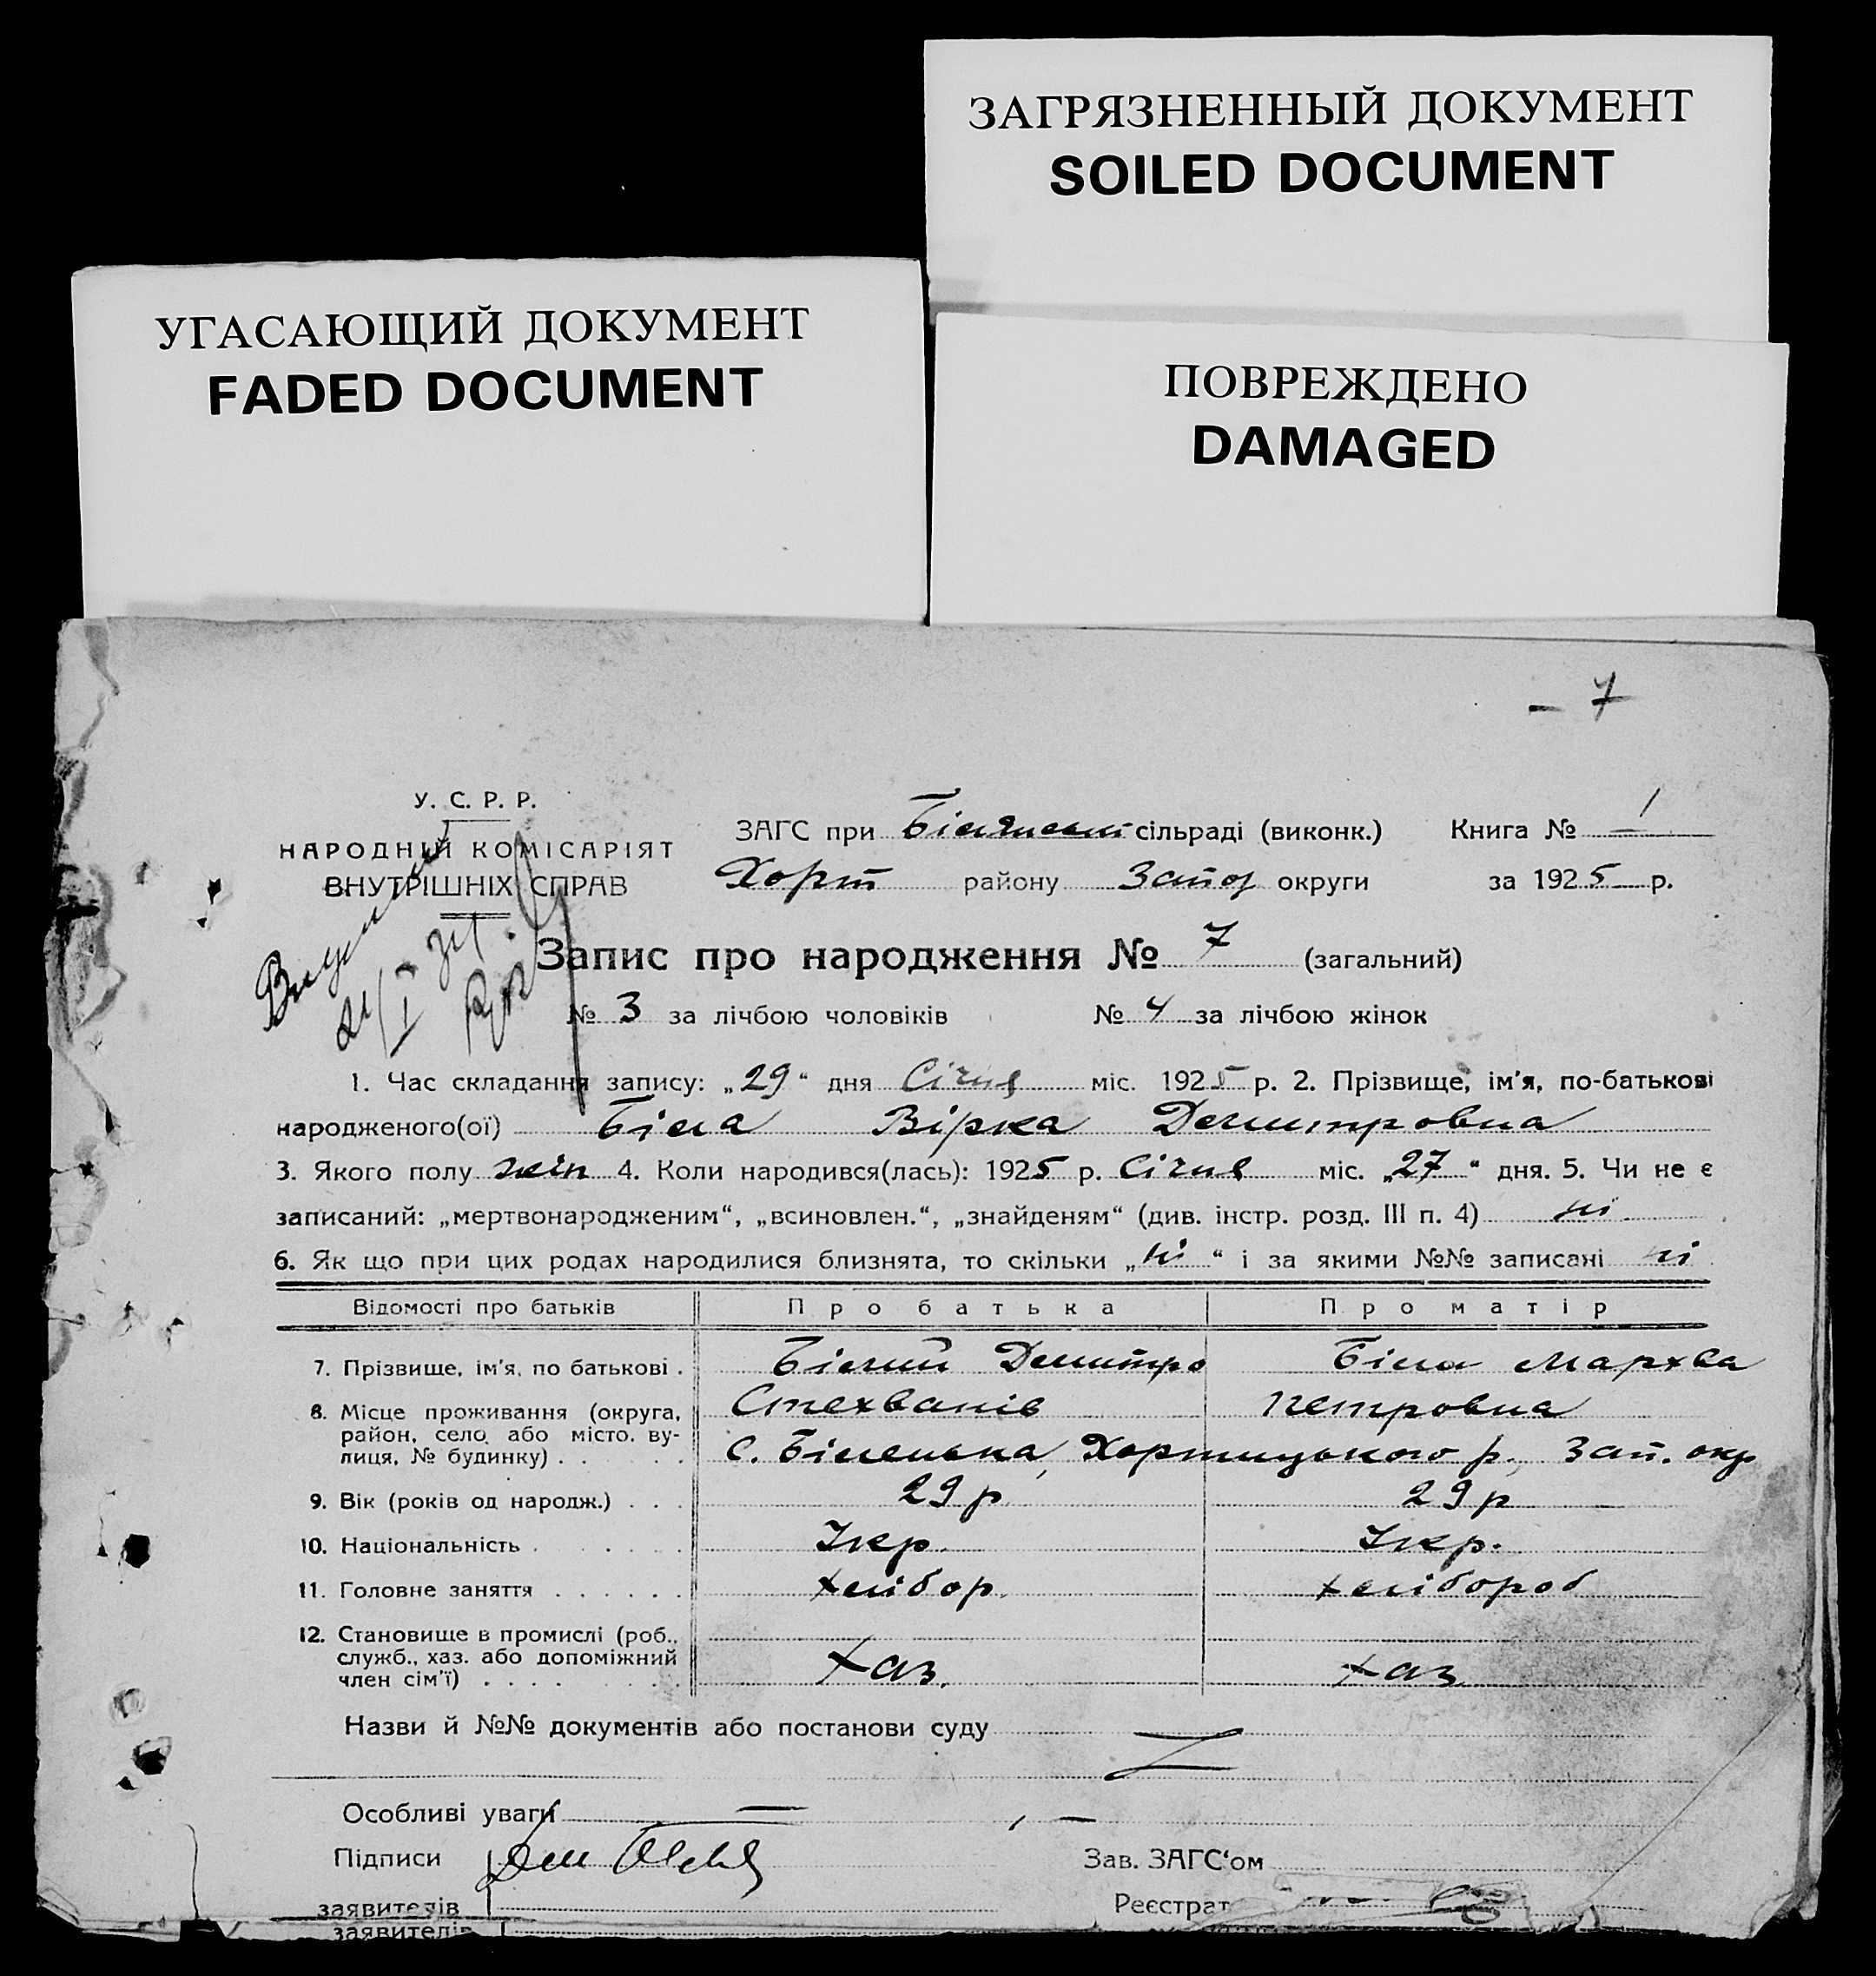 ЗАГРЯЗНЕННЫЙ ДОКУМЕНТ
SOILED DOCUMENT
УГАСАЮЩИЙ ДОКУМЕНТ
FADED DOCUMENT
ПОВРЕЖДЕНО
DAMAGED
– 7
У. С. Р. Р.
НАРОДНІЙ КОМІСАРІЯТ
ВНУТРІШНІХ СПРАВ
ЗАГС при сільраді (виконк.) Книга № 1
Хорт району Запор округи за 1925 р.
Запис про народження № 7 (загальний)
№ 3 за лічбою чоловіків № 4 за лічбою жінок
1. Час складання запису: „29“ дня Січня міс. 1925 р. 2. Прізвище, ім'я, по-батькові
народженого(ої) Біла Вірка Демитровна
3. Якого полу жін 4. Коли народився(лась): 1925 р. Січня міс. „27“ дня. 5. Чи не є
записаний: „мертвонародженим“, „всиновлен.“, „знайденям“ (див. інстр. розд. III п. 4) ні
6. Як що при цих родах народилися близнята, то скільки „ні“ і за якими №№ записані ні
Відомості про батьків Про батька Про матір
7. Прізвище, ім'я, по батькові . Білий Демитро Біла Мархва
Стехванів Петровна
8. Місце проживання (округа,
район, село або місто, ву-
лиця, № будинку) . . . . . . С. Біленька, Хортицького р., Зап. окр
9. Вік (років од народж.) . . . 29 р. 29 р
10. Національність . . . . . . Укр. Укр.
11. Головне заняття . . . . . . хлібор. хлібороб
12. Становище в промислі (роб.,
служб., хаз. або допоміжний
член сім'ї) . . . . . . . . . хаз. хаз.
Назви й №№ документів або постанови суду
Особливі уваги — , —
Підписи Зав. ЗАГС‘ом
заявителів Реєстрат
заявителів